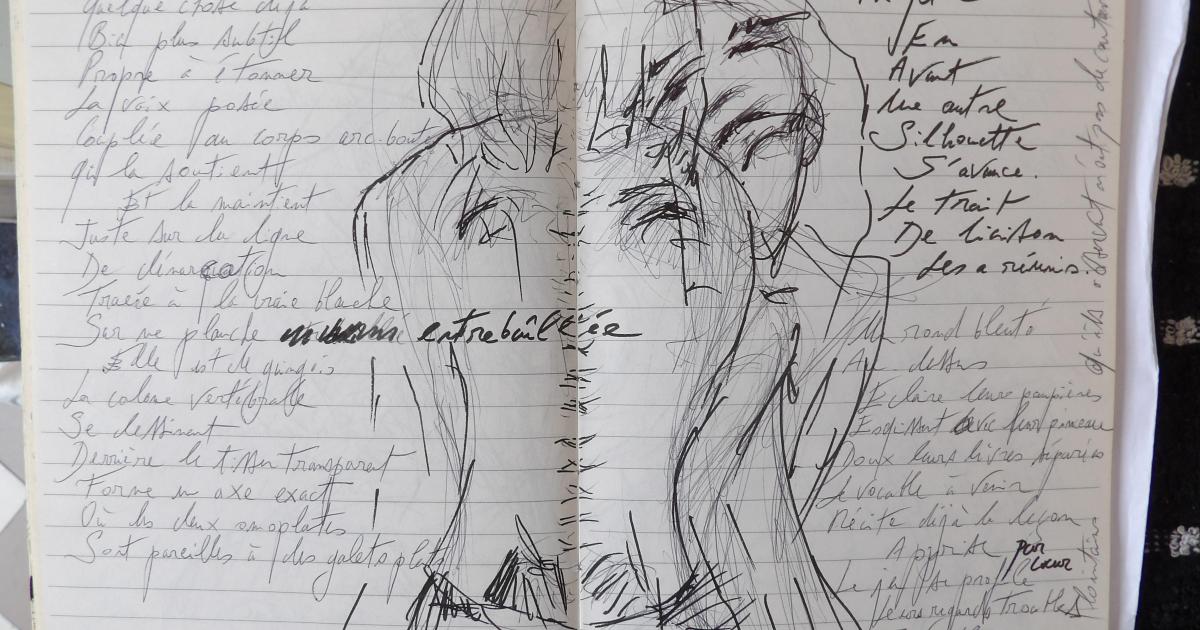 Quelque chose déjà
Bien plus subtil
Propre à étonner
La voix posée
Couplée au corps arc-bouté
qui la soutient
Et la maintient
Juste sur la ligne
De démarcation
Tracée à la craie blanche
Sur une planche entrebâillée
Elle est de guingois
La colone vertébralle
Se dessinent
Derrière le tissu transparent
Forme un axe exact
Où les deux omoplates
Sont pareilles à des galets plats
En
Avant
Une autre
Silhouette
S'avance.
Le trait
De liaison
Les a réunis.
Un rond bleuté
Au dessus
Eclaire leurs paupières
Esquissent avec leur pinceau
Doux leurs lèvres séparées
Le vocable à venir
Récite déjà la leçon
Apprise par cœur
Le se profile
Leurs regards troubles